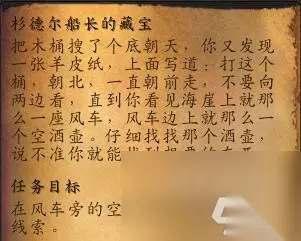 杉德尔船长的藏宝
把木桶搜了个底朝天，你又发现
一张羊皮纸，上面写道：打这个
桶，朝北，一直朝前走，不要向
两边看，直到你看见海崖上就那
么一座风车，风车边上就那么一
个空酒壶。仔细找找那个酒壶，
说不准你就能
任务目标
在风车旁的空
线索。